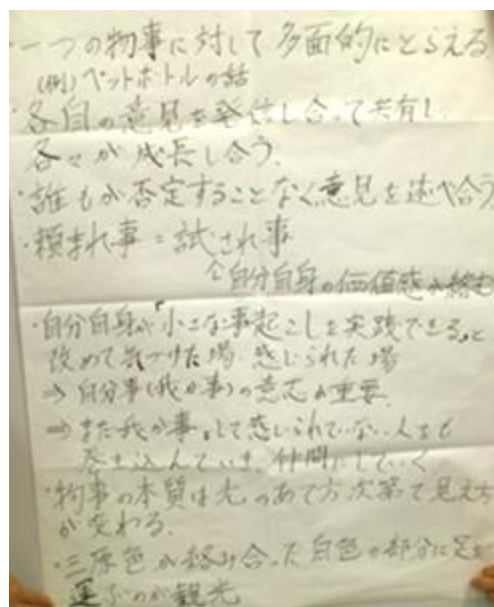 ・一つの物事に対して多面的にとらえる
(例)ペットボトルの話
・各自の意見を発信し合って共有し
各々が成長し合う。
・誰もが否定することなく意見を述べ合う
・頼まれ事=試され事
自分自身の価値感が絡む
・自分自身が「小さな事起こしを実践できる」と
改めて気づけた場 感じられた場
⇒ 自分事(我が事)の意志が重要
⇒ まだ我が事として感じられていない人をも
巻き込んでいき、仲間にしていく
・物事の本質は光のあて方次第で見え方
が変わる。
・三原色が絡み合った白色の部分に足を
運ぶのが観光